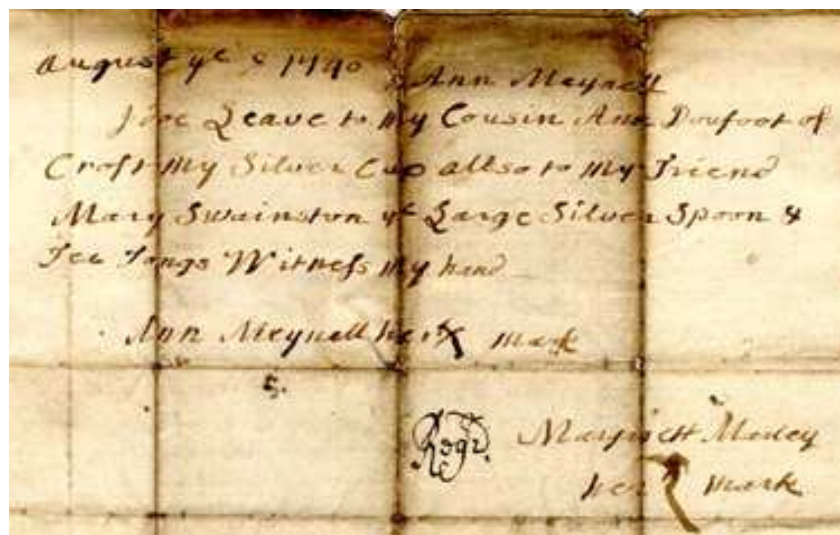 August ye 8 1740 Ann Meynell
I doe Leave to my Cousin Ann Doufoot of
Croft My Silver Cup allso to My Friend
Mary Swainston ye Large Silver Spoon &
Tea Tongs Witness my hand
Ann Meynell her X mark
5.
Regr.
Margrett Moxey
her mark